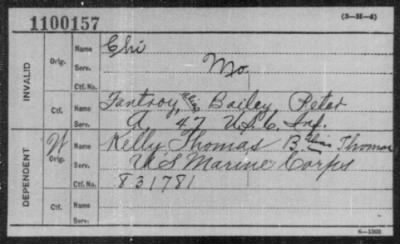 1100157
(3-H-4)
INVALID
Orig.
Name Chi
Serv. Mo.
Ctf. No.
Ctf.
Name Fantroy, alias Bailey, Peter
Serv. A 47 U.S.C. Inf.
DEPENDENT
W
Orig.
Name Kelly Thomas B alias Thomas
Serv. U.S Marine Corps
Ctf. No. 831781
Ctf.
Name
Serv.